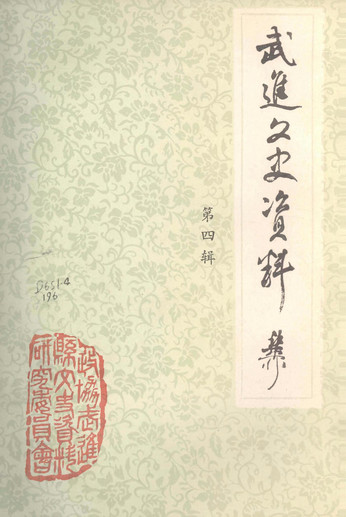 武進文史资料
第四辑
D651.4
196
政協武進
縣文史資料
研究委員會